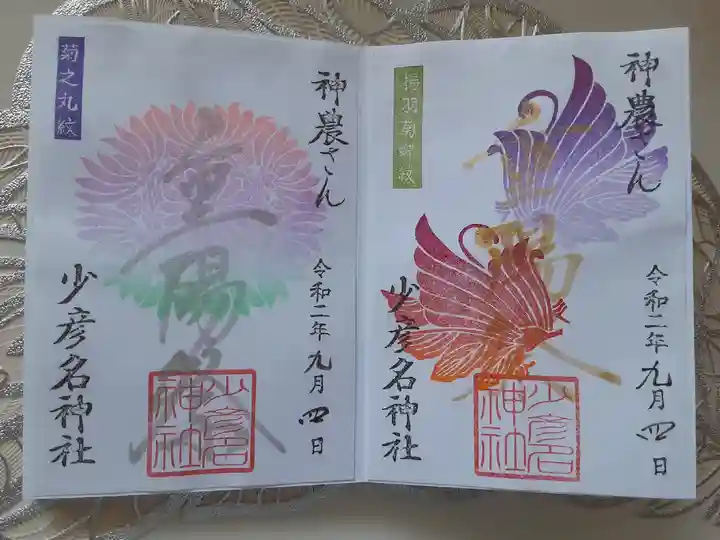 神農さん
令和二年九月四日
重陽
少彦名神社
少彦名神社
神農さん
令和二年九月四日
重陽祭
少彦名神社
少彦名神社
菊之丸紋